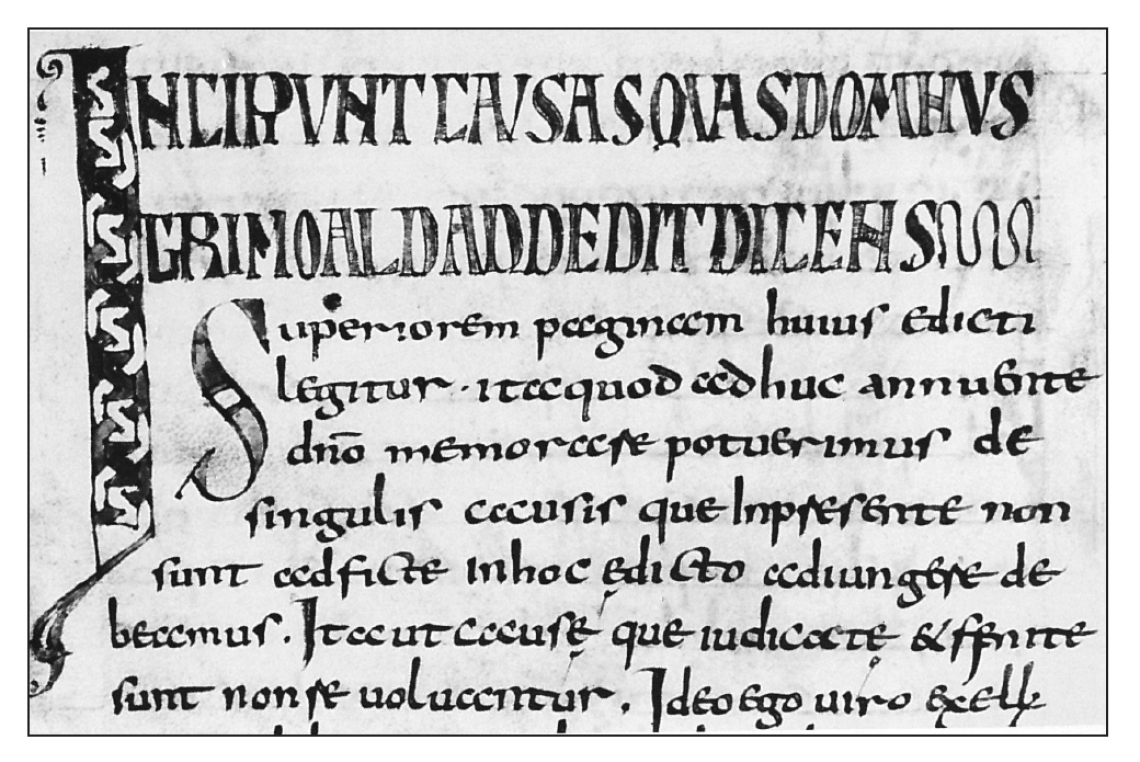 INCIPIUNT CAUSAS QUAS DOMNUS
GRIMOALD ADDEDIT DICENS
Superiorem paginam huius edicti
legitur · ita quod adhuc annuente
dño memorare potuerimus de
singulis causis que Inpresente non
sunt adficte inhoc ędicto adiungere de
beamus. Ita ut causę que iudicatę & finite
sunt non reuoluantur. Ideo ego uiro excell